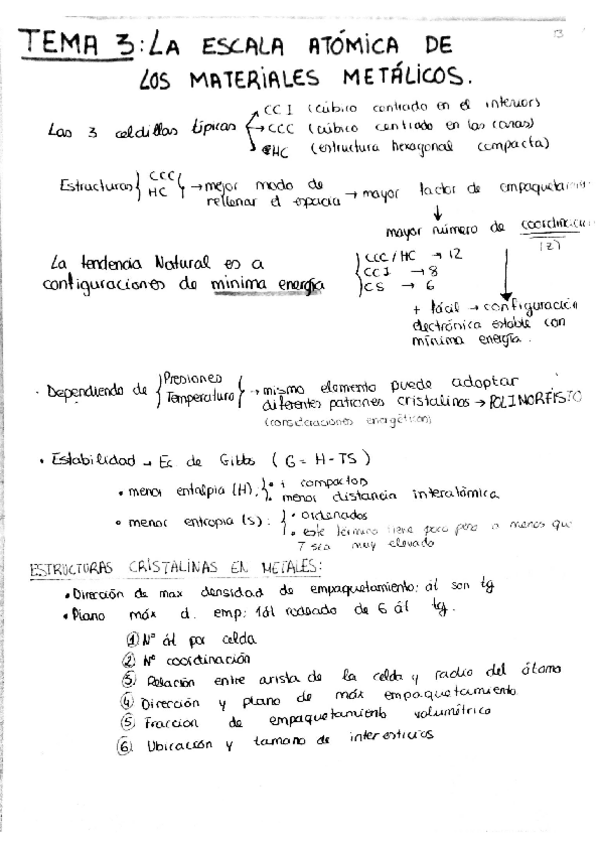 TEMA 3: LA ESCALA ATÓMICA DE
LOS MATERIALES METÁLICOS.
Las 3 celdillas típicas
CCI (cúbico centrado en el interior)
CCC (cúbico centrado en las caras)
HC (estructura hexagonal compacta)
Estructuras CCC HC → mejor modo de rellenar el espacio → mayor factor de empaquetamiento
mayor número de coordinación
(z)
La tendencia Natural es a
configuraciones de mínima energía
CCC/HC → 12
CCI → 8
CS → 6
+ fácil → configuración
electrónica estable con
mínima energía.
· Dependiendo de Presiones Temperatura → mismo elemento puede adoptar
diferentes patrones cristalinos → POLIMORFISMO
(consideraciones energéticas)
• Estabilidad → Ec. de Gibbs (G = H - TS)
• menor entalpía (H). • + compactos
• menor distancia interatómica
• menor entropía (s): • ordenados
• este término tiene poco peso a menos que
T sea muy elevado
ESTRUCTURAS CRISTALINAS EN METALES:
• Dirección de max densidad de empaquetamiento: át son tg
• Plano máx d. emp: 1át rodeado de 6 át tg.
① Nº át por celda
② Nº coordinación
③ Relación entre arista de la celda y radio del átomo
④ Dirección y plano de máx empaquetamiento
⑤ Fracción de empaquetamiento volumétrico
⑥ Ubicación y tamaño de intersticios